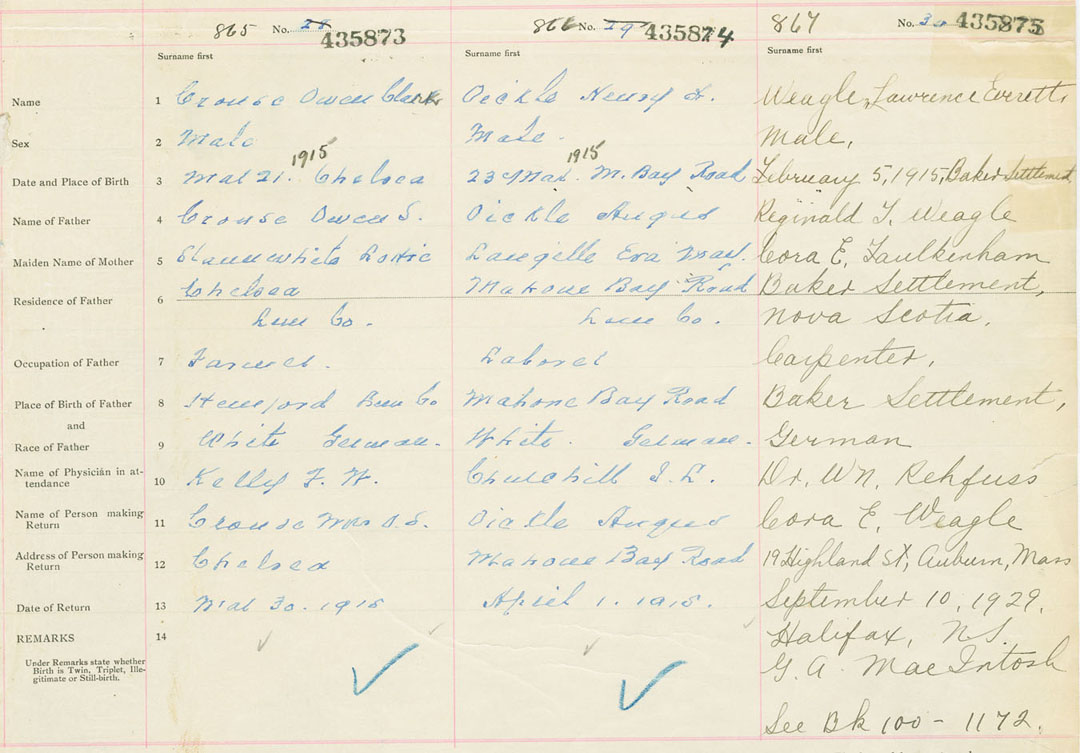 865 No. 28 435873 866 No. 29 435874 867 No. 30 435875
Surname first Surname first Surname first
Name 1 Crouse Owen Clark Oickle Henry Weagle, Lawrence Everett
Sex 2 Male Male Male,
1915 1915
Date and Place of Birth 3 Mar 21. Chelsea 23 Mar. M. Bay Road February 5, 1915, Baker Settlement
Name of Father 4 Crouse Owen S. Oickle Angus Reginald T. Weagle
Maiden Name of Mother 5 Slaunwhite Lottie Langille Eva Cora E. Faulkenham
Residence of Father 6 Chelsea Mahone Bay Road Baker Settlement,
Lun Co. Lun Co. Nova Scotia.
Occupation of Father 7 Farmer. Laborer Carpenter,
Place of Birth of Father 8 Hemford Lun Co Mahone Bay Road Baker Settlement,
and
Race of Father 9 White German. White. German. German
Name of Physician in at-
tendance 10 Kelly F. W. Churchill I. L. Dr. W.N. Rehfuss
Name of Person making
Return 11 Crouse Mrs O. S. Oickle Angus Cora E. Weagle
Address of Person making
Return 12 Chelsea Mahone Bay Road 19 Highland St, Auburn, Mass
Date of Return 13 Mar 30. 1915 April 1. 1915. September 10, 1929.
REMARKS 14 Halifax, N.S.
Under Remarks state whether
Birth is Twin, Triplet, Ille-
gitimate or Still-birth.
G. A. MacIntosh
See Bk 100 - 1172.